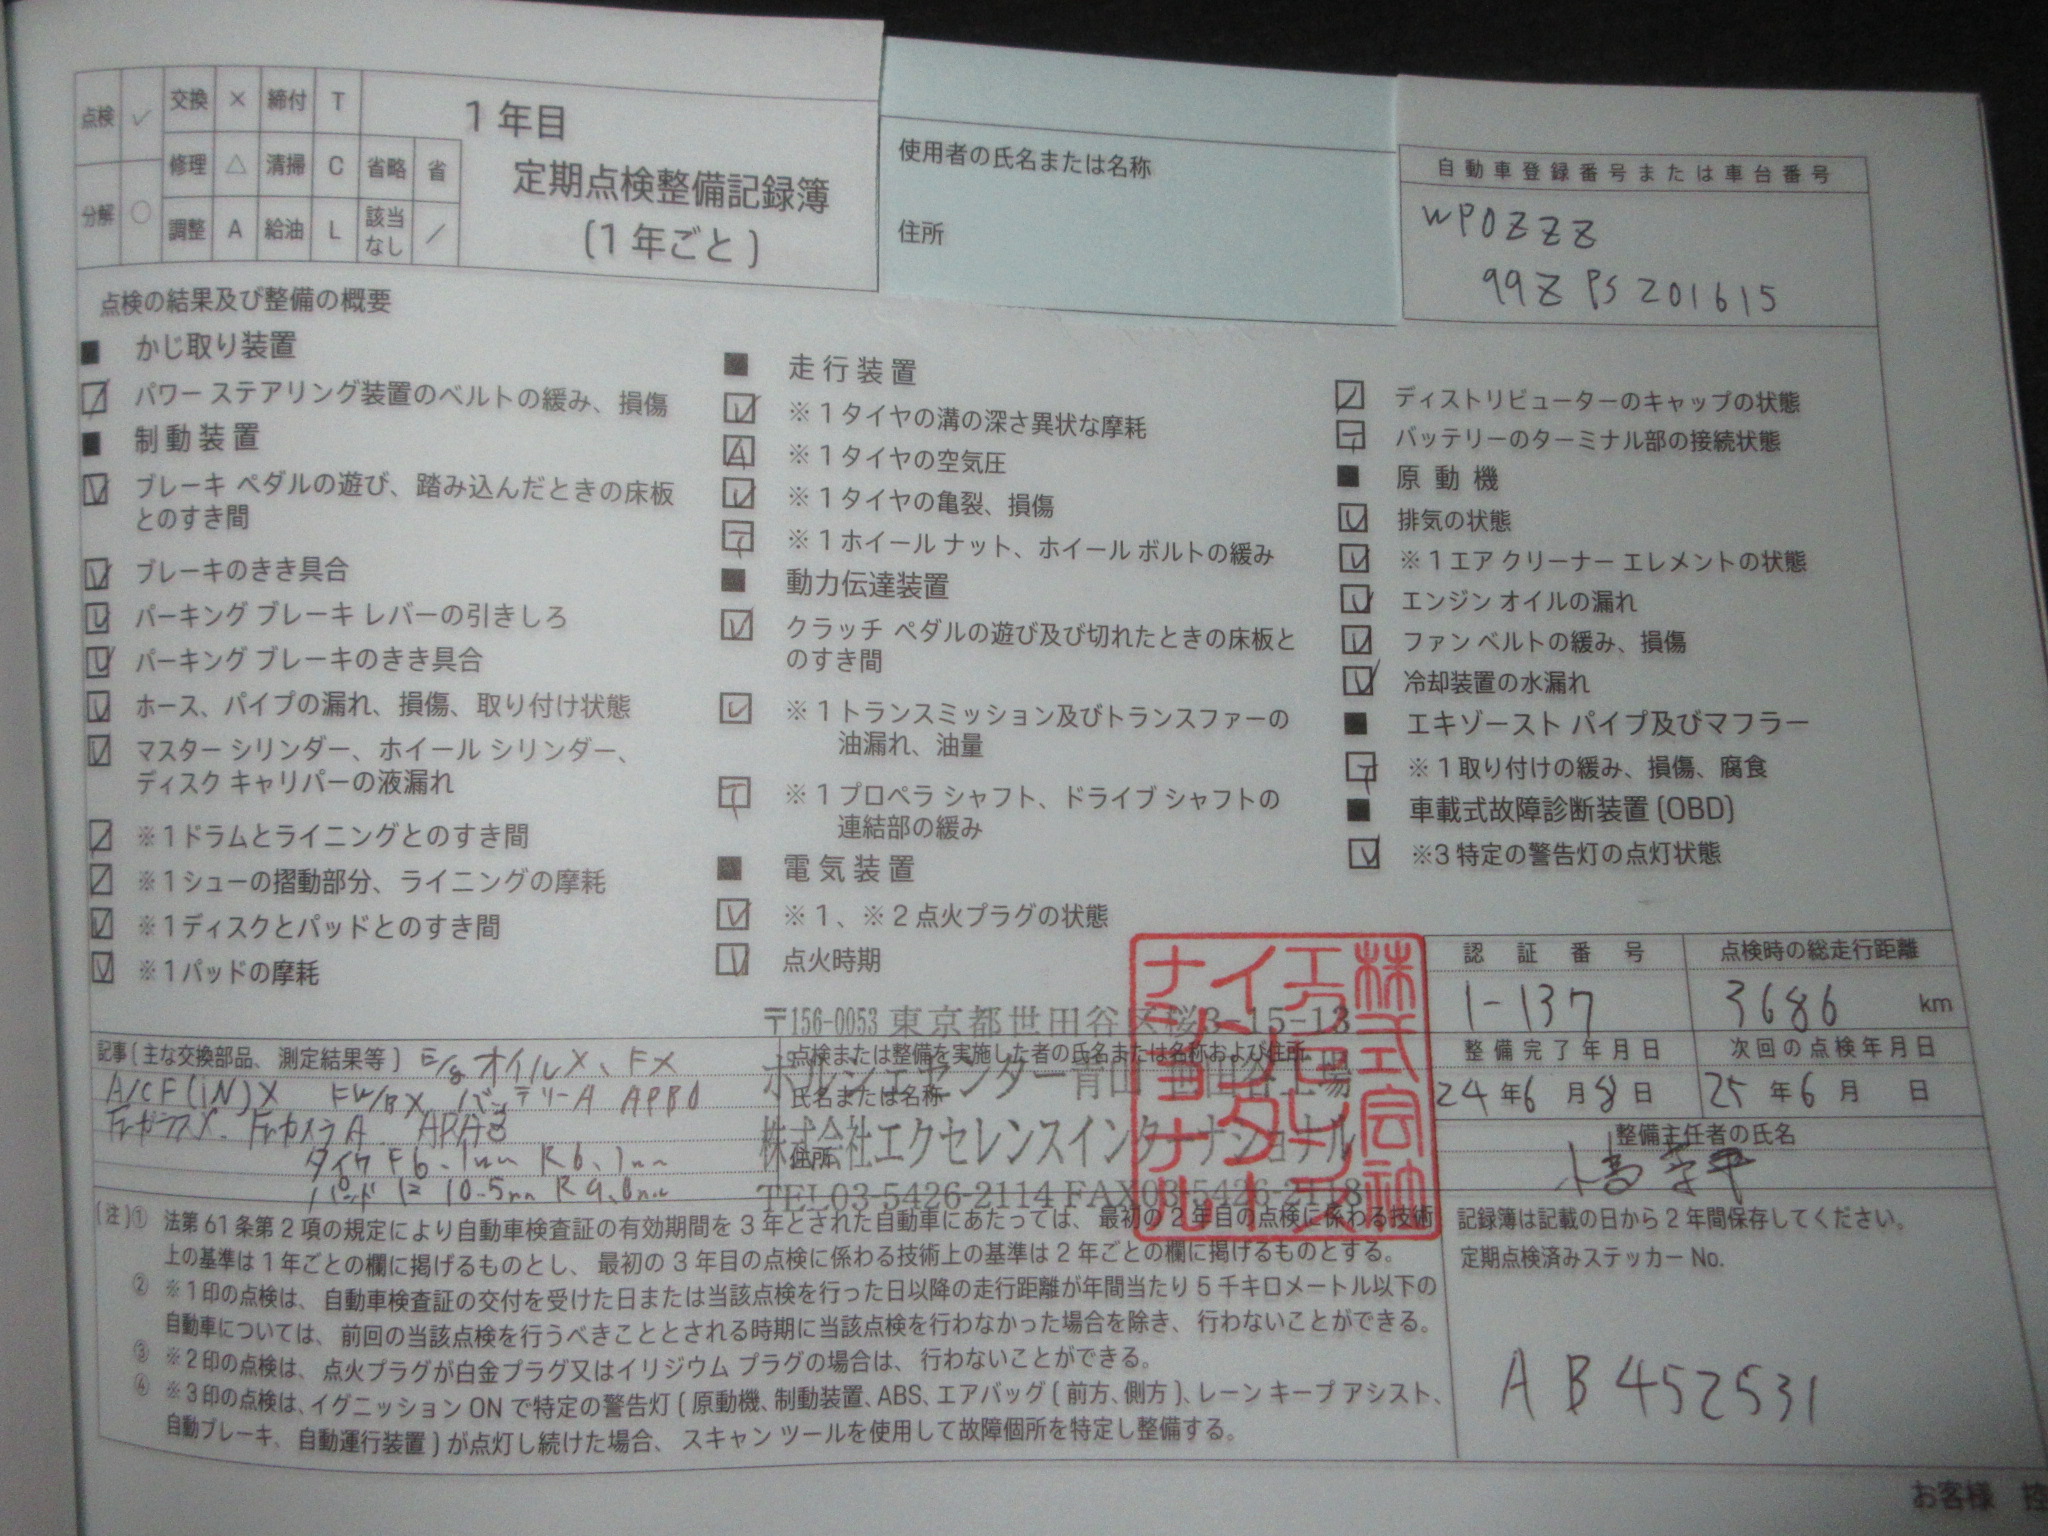 点検 ✓ 交換 × 締付 T
修理 △ 清掃 C 省略 省
分解 ○ 調整 A 給油 L 該当なし ／
1年目
定期点検整備記録簿
(1年ごと)
使用者の氏名または名称
住所
自動車登録番号または車台番号
WP0ZZZ
99Z PS201615
点検の結果及び整備の概要
■ かじ取り装置
パワー ステアリング装置のベルトの緩み、損傷
■ 制動装置
ブレーキ ペダルの遊び、踏み込んだときの床板
とのすき間
ブレーキのきき具合
パーキング ブレーキ レバーの引きしろ
パーキング ブレーキのきき具合
ホース、パイプの漏れ、損傷、取り付け状態
マスター シリンダー、ホイール シリンダー、
ディスク キャリパーの液漏れ
※1ドラムとライニングとのすき間
※1シューの摺動部分、ライニングの摩耗
※1ディスクとパッドとのすき間
※1パッドの摩耗
■ 走行装置
※1タイヤの溝の深さ異状な摩耗
A ※1タイヤの空気圧
※1タイヤの亀裂、損傷
T ※1ホイール ナット、ホイール ボルトの緩み
■ 動力伝達装置
クラッチ ペダルの遊び及び切れたときの床板と
のすき間
※1トランスミッション及びトランスファーの
油漏れ、油量
T ※1プロペラ シャフト、ドライブ シャフトの
連結部の緩み
■ 電気装置
※1、※2点火プラグの状態
点火時期
ディストリビューターのキャップの状態
T バッテリーのターミナル部の接続状態
■ 原動機
排気の状態
※1エア クリーナー エレメントの状態
エンジン オイルの漏れ
ファン ベルトの緩み、損傷
冷却装置の水漏れ
■ エキゾースト パイプ及びマフラー
T ※1取り付けの緩み、損傷、腐食
■ 車載式故障診断装置(OBD)
※3特定の警告灯の点灯状態
認証番号
1-137
点検時の総走行距離
3686 km
整備完了年月日
24年6月8日
次回の点検年月日
25年6月 日
整備主任者の氏名
記事(主な交換部品、測定結果等) E/g オイルX、FX
A/CF(IN)X FW/BX バッテリーA APB0
FrガラスX. FrカメラA.
タイヤ F6.1mm R6.1mm
パッド F 10.5mm R9.0mm
点検または整備を実施した者の氏名または名称および住所
氏名または名称
住所
〒156-0053 東京都世田谷区桜3-15-13
ポルシェセンター青山 世田谷工場
株式会社エクセレンスインターナショナル
TEL03-5426-2114 FAX03-5426-2118
株式会社
エクセレンス
インター
ナショナル
(注)① 法第61条第2項の規定により自動車検査証の有効期間を3年とされた自動車にあたっては、最初の2年目の点検に係わる技術
上の基準は1年ごとの欄に掲げるものとし、最初の3年目の点検に係わる技術上の基準は2年ごとの欄に掲げるものとする。
② ※1印の点検は、自動車検査証の交付を受けた日または当該点検を行った日以降の走行距離が年間当たり5千キロメートル以下の
自動車については、前回の当該点検を行うべきこととされる時期に当該点検を行わなかった場合を除き、行わないことができる。
③ ※2印の点検は、点火プラグが白金プラグ又はイリジウム プラグの場合は、行わないことができる。
④ ※3印の点検は、イグニッションONで特定の警告灯(原動機、制動装置、ABS、エアバッグ(前方、側方)、レーン キープ アシスト、
自動ブレーキ、自動運行装置)が点灯し続けた場合、スキャン ツールを使用して故障個所を特定し整備する。
記録簿は記載の日から2年間保存してください。
定期点検済みステッカー No.
AB452531
お客様 控